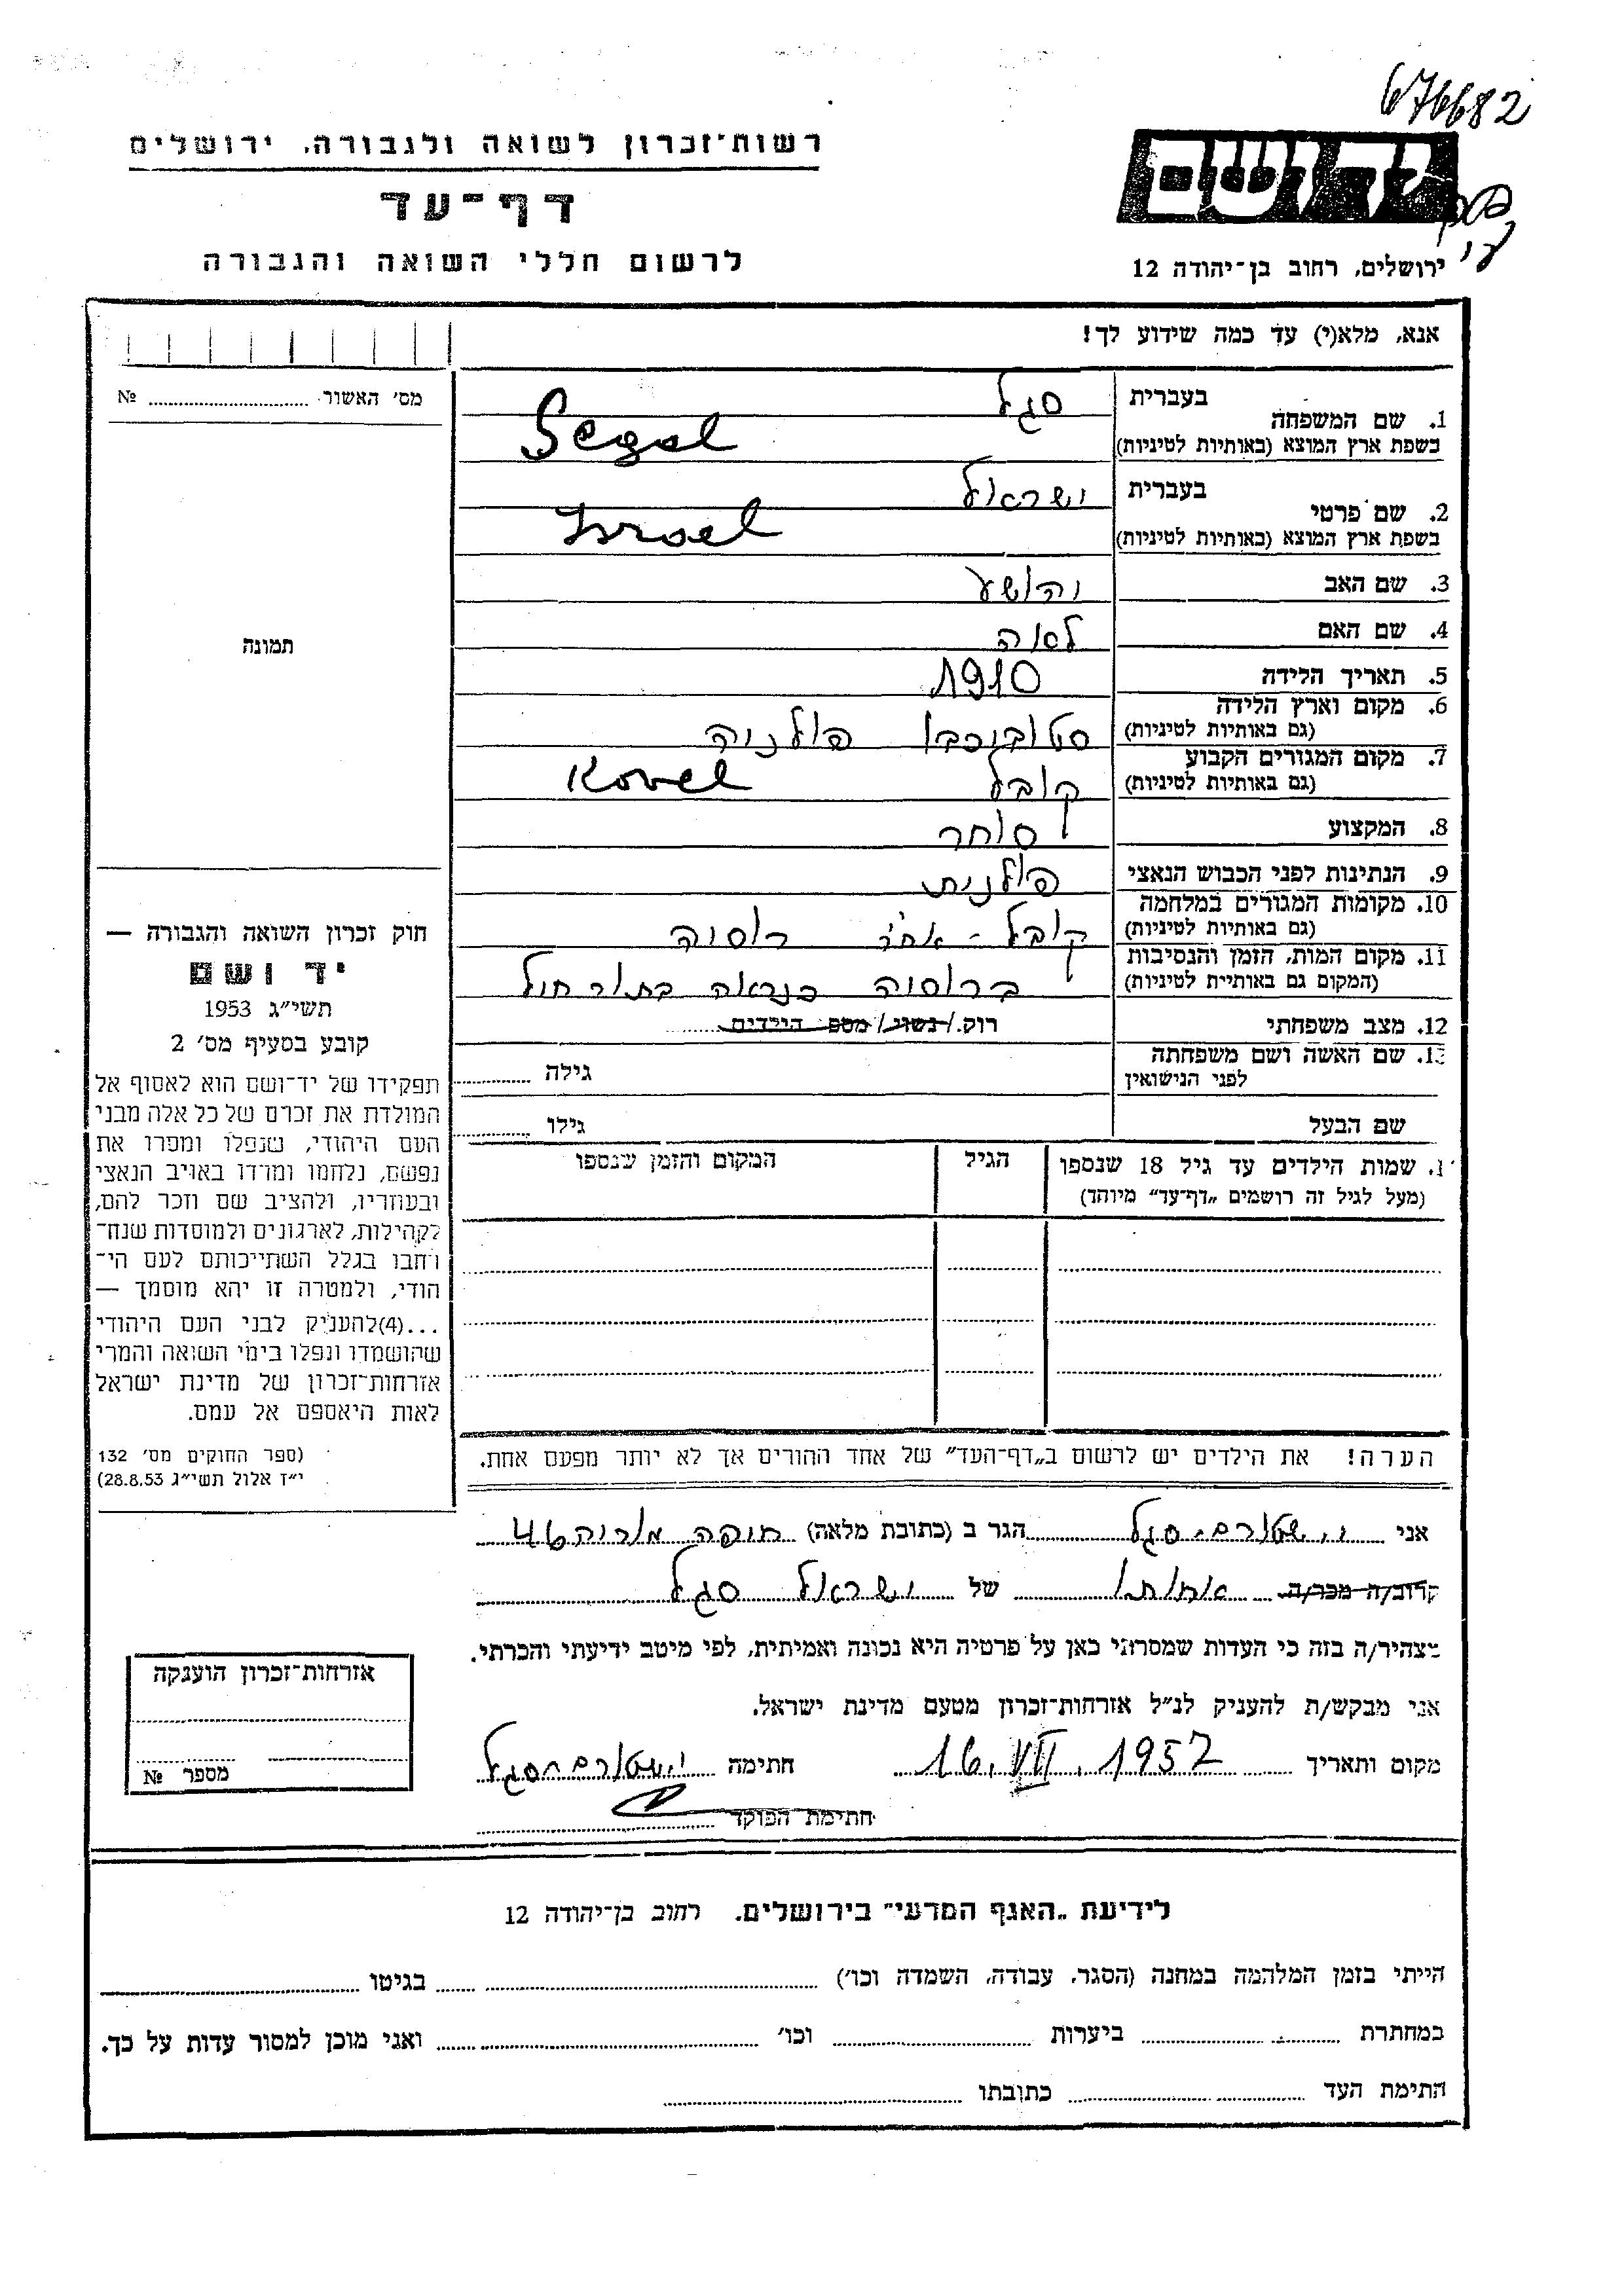 676682
רשות־זכרון לשואה ולגבורה, ירושלים
דף־עד
לרשום חללי השואה והגבורה
ידושם
ירושלים, רחוב בן־יהודה 12
אנא, מלא(י) עד כמה שידוע לך!
מס׳ האשור № 
1. שם המשפחה
בעברית סגל
בשפת ארץ המוצא (באותיות לטיניות) Segal
2. שם פרטי
בעברית ישראל
בשפת ארץ המוצא (באותיות לטיניות) Israel
3. שם האב יהושע
4. שם האם לאה
5. תאריך הלידה 1910
6. מקום וארץ הלידה
(גם באותיות לטיניות) פולניה
7. מקום המגורים הקבוע
(גם באותיות לטיניות) קובל Kovel
8. המקצוע סוחר
9. הנתינות לפני הכבוש הנאצי פולנית
10. מקומות המגורים במלחמה
(גם באותיות לטיניות) קובל - אח״כ רוסיה
11. מקום המות, הזמן והנסיבות
(המקום גם באותיית לטיניות) ברוסיה כנראה בתור חייל
12. מצב משפחתי רוק/נשוי/מספ׳ הילדים
13. שם האשה ושם משפחתה
לפני הנישואין גילה
שם הבעל גילו
1. שמות הילדים עד גיל 18 שנספו
(מעל לגיל זה רושמים „דף־עד” מיוחד)
הגיל
המקום והזמן שנספו
תמונה
חוק זכרון השואה והגבורה —
יד ושם
תשי״ג 1953
קובע בסעיף מס׳ 2
תפקידו של יד־ושם הוא לאסוף אל
המולדת את זכרם של כל אלה מבני
העם היהודי, שנפלו ומסרו את
נפשם, נלחמו ומרדו באויב הנאצי
ובעוזריו, ולהציב שם וזכר להם,
לקהילות, לארגונים ולמוסדות שנח־
רבו בגלל השתייכותם לעם הי־
הודי, ולמטרה זו יהא מוסמך —
...(4)להעניק לבני העם היהודי
שהושמדו ונפלו בימי השואה והמרי
אזרחות־זכרון של מדינת ישראל
לאות היאספם אל עמם.
(ספר החוקים מס׳ 132
י״ז אלול תשי״ג 28.8.53)
הערה! את הילדים יש לרשום ב„דף־העד” של אחד ההורים אך לא יותר מפעם אחת.
אני סגל הגר ב (כתובת מלאה) חיפה 46
קרוב/ה מכר/ה אחותו של ישראל סגל
מצהיר/ה בזה כי העדות שמסרתי כאן על פרטיה היא נכונה ואמיתית, לפי מיטב ידיעתי והכרתי.
אני מבקש/ת להעניק לנ״ל אזרחות־זכרון מטעם מדינת ישראל.
מקום ותאריך 16. VII. 1957 חתימה סגל
חתימת הפוקד
אזרחות־זכרון הוענקה
מספר №
לידיעת „האגף המדעי” בירושלים, רחוב בן־יהודה 12
הייתי בזמן המלחמה במחנה (הסגר, עבודה, השמדה וכו׳) בגיטו
במחתרת ביערות וכו׳ ואני מוכן למסור עדות על כך.
חתימת העד כתובתו